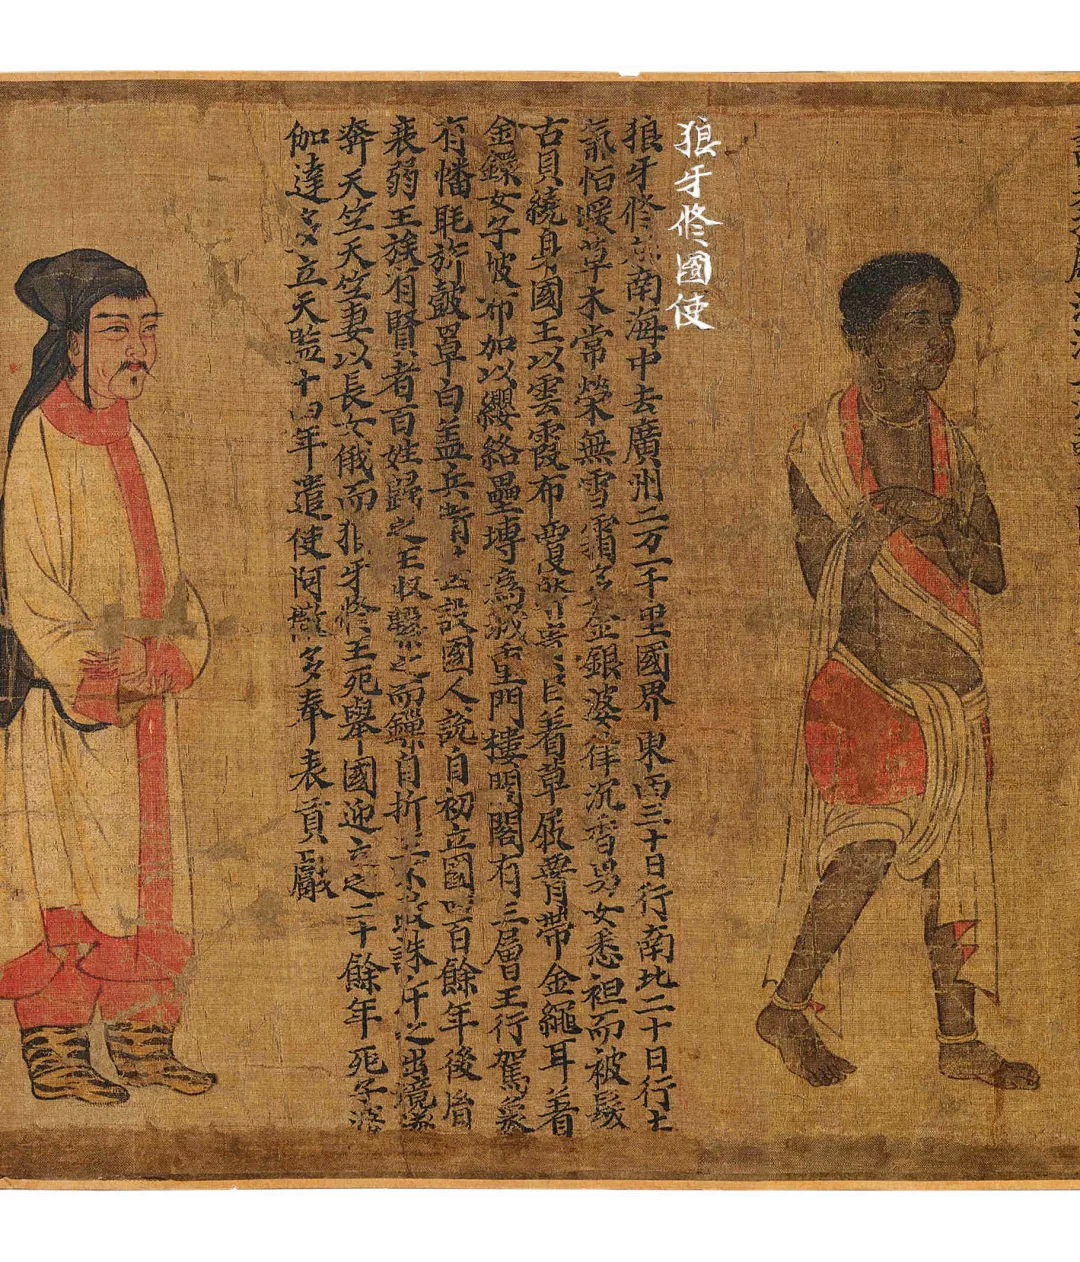 狼牙修國使
狼牙修在南海中去廣州二万一千里國界東西三十日行南北二十日行土
氣恒暖草木常榮無雪霜多金銀婆律沉香男女悉袒而被髮
古貝繞身國王以雲霞布覆着草屐帶金繩耳着
金鐶女子披布加以纓絡壘塼為城重門樓閣有三層王行駕象
有幡毦旂鼓罩白盖兵設國人說自初立國四百餘年後
衰弱王族有賢者百姓歸之王収繫之而鏁自折王不誅斥之出境
奔天竺天竺妻以長女俄而狼牙修王死舉國迎立之二十餘年死子婆
伽達多立天監十四年遣使阿撒多奉表貢獻